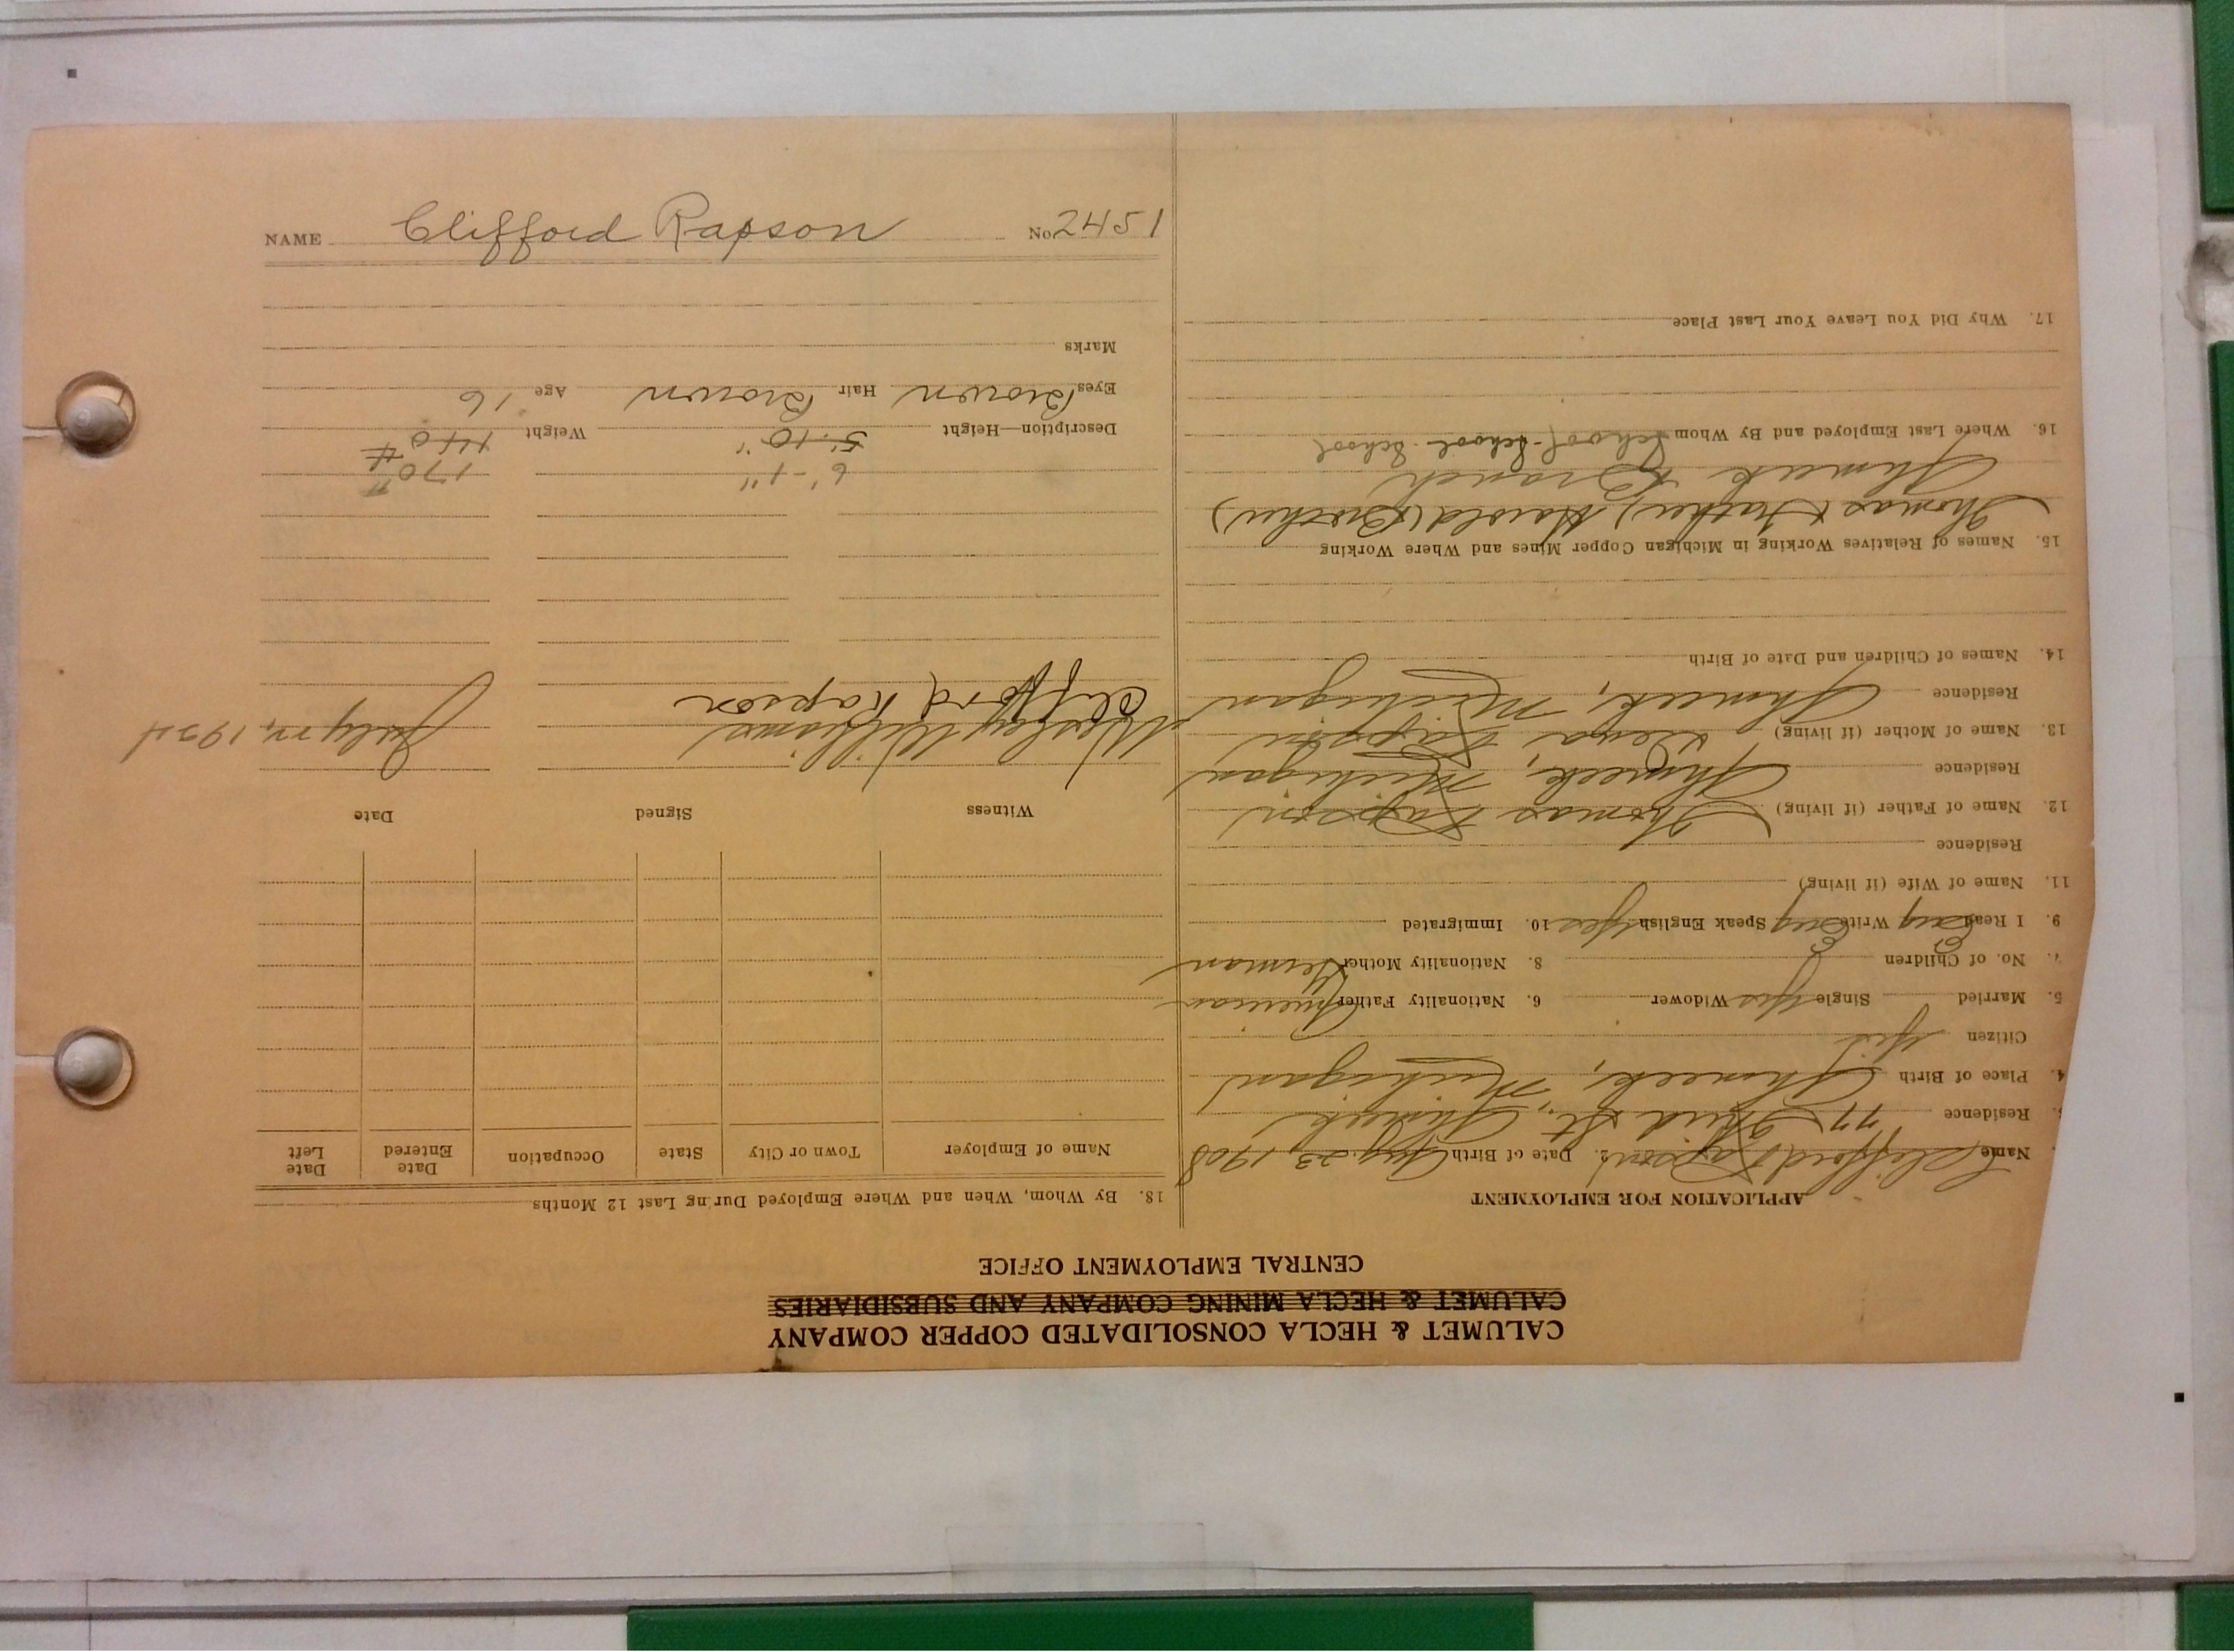 CALUMET & HECLA CONSOLIDATED COPPER COMPANY
CALUMET & HECLA MINING COMPANY AND SUBSIDIARIES
CENTRAL EMPLOYMENT OFFICE
APPLICATION FOR EMPLOYMENT
Name Clifford Rapson 2. Date of Birth Aug. 23, 1908
Residence Third St., Ahmeek
4. Place of Birth Ahmeek, Michigan
Citizen Yes
5. Married Single Yes Widower 6. Nationality Father American
No. of Children 8. Nationality Mother German
9. I Read Eng Write Eng Speak English Yes 10. Immigrated
11. Name of Wife (if living)
Residence
12. Name of Father (if living) Thomas Rapson
Residence Ahmeek, Michigan
13. Name of Mother (if living) Lena Rapson
Residence Ahmeek, Michigan
14. Names of Children and Date of Birth
15. Names of Relatives Working in Michigan Copper Mines and Where Working
Thomas (Father) Harold (Brother)
Ahmeek Branch
16. Where Last Employed and By Whom School - School - School
17. Why Did You Leave Your Last Place
18. By Whom, When and Where Employed During Last 12 Months
Name of Employer Town or City State Occupation Date Entered Date Left
Witness Signed Date
Wesley Williams July 1924
Clifford Rapson
6'-1" 170#
Description—Height 5'-10" Weight 140#
Eyes Brown Hair Brown Age 16
Marks
NAME Clifford Rapson No 2451